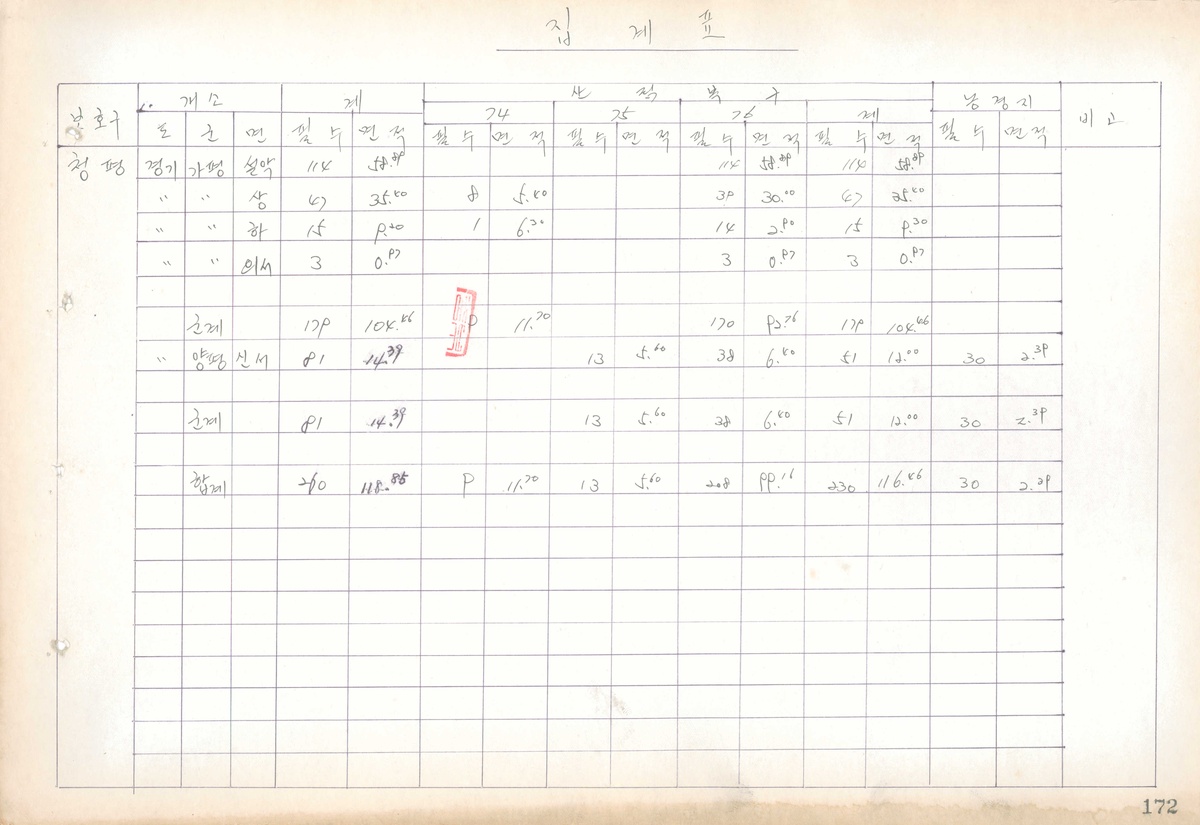 집 계 표
보호구 개소 계 산 적 복 구 농경지 비고
74 75 76 계
도 군 면 필수 면적 필수 면적 필수 면적 필수 면적 필수 면적 필수 면적
청평 경기 가평 설악 114 58.89 114 58.89 114 58.89
〃 〃 상 47 35.40 8 5.40 39 30.00 47 35.40
〃 〃 하 15 9.20 1 6.30 14 2.90 15 9.20
〃 〃 외서 3 0.97 3 0.97 3 0.97
군계 179 104.46 9 11.70 170 92.76 179 104.46
〃 양평 81 14.39 13 5.60 38 6.40 51 12.00 30 2.39
군계 81 14.39 13 5.60 38 6.40 51 12.00 30 2.39
합계 260 118.85 9 11.70 13 5.60 208 99.16 230 116.46 30 2.39
172